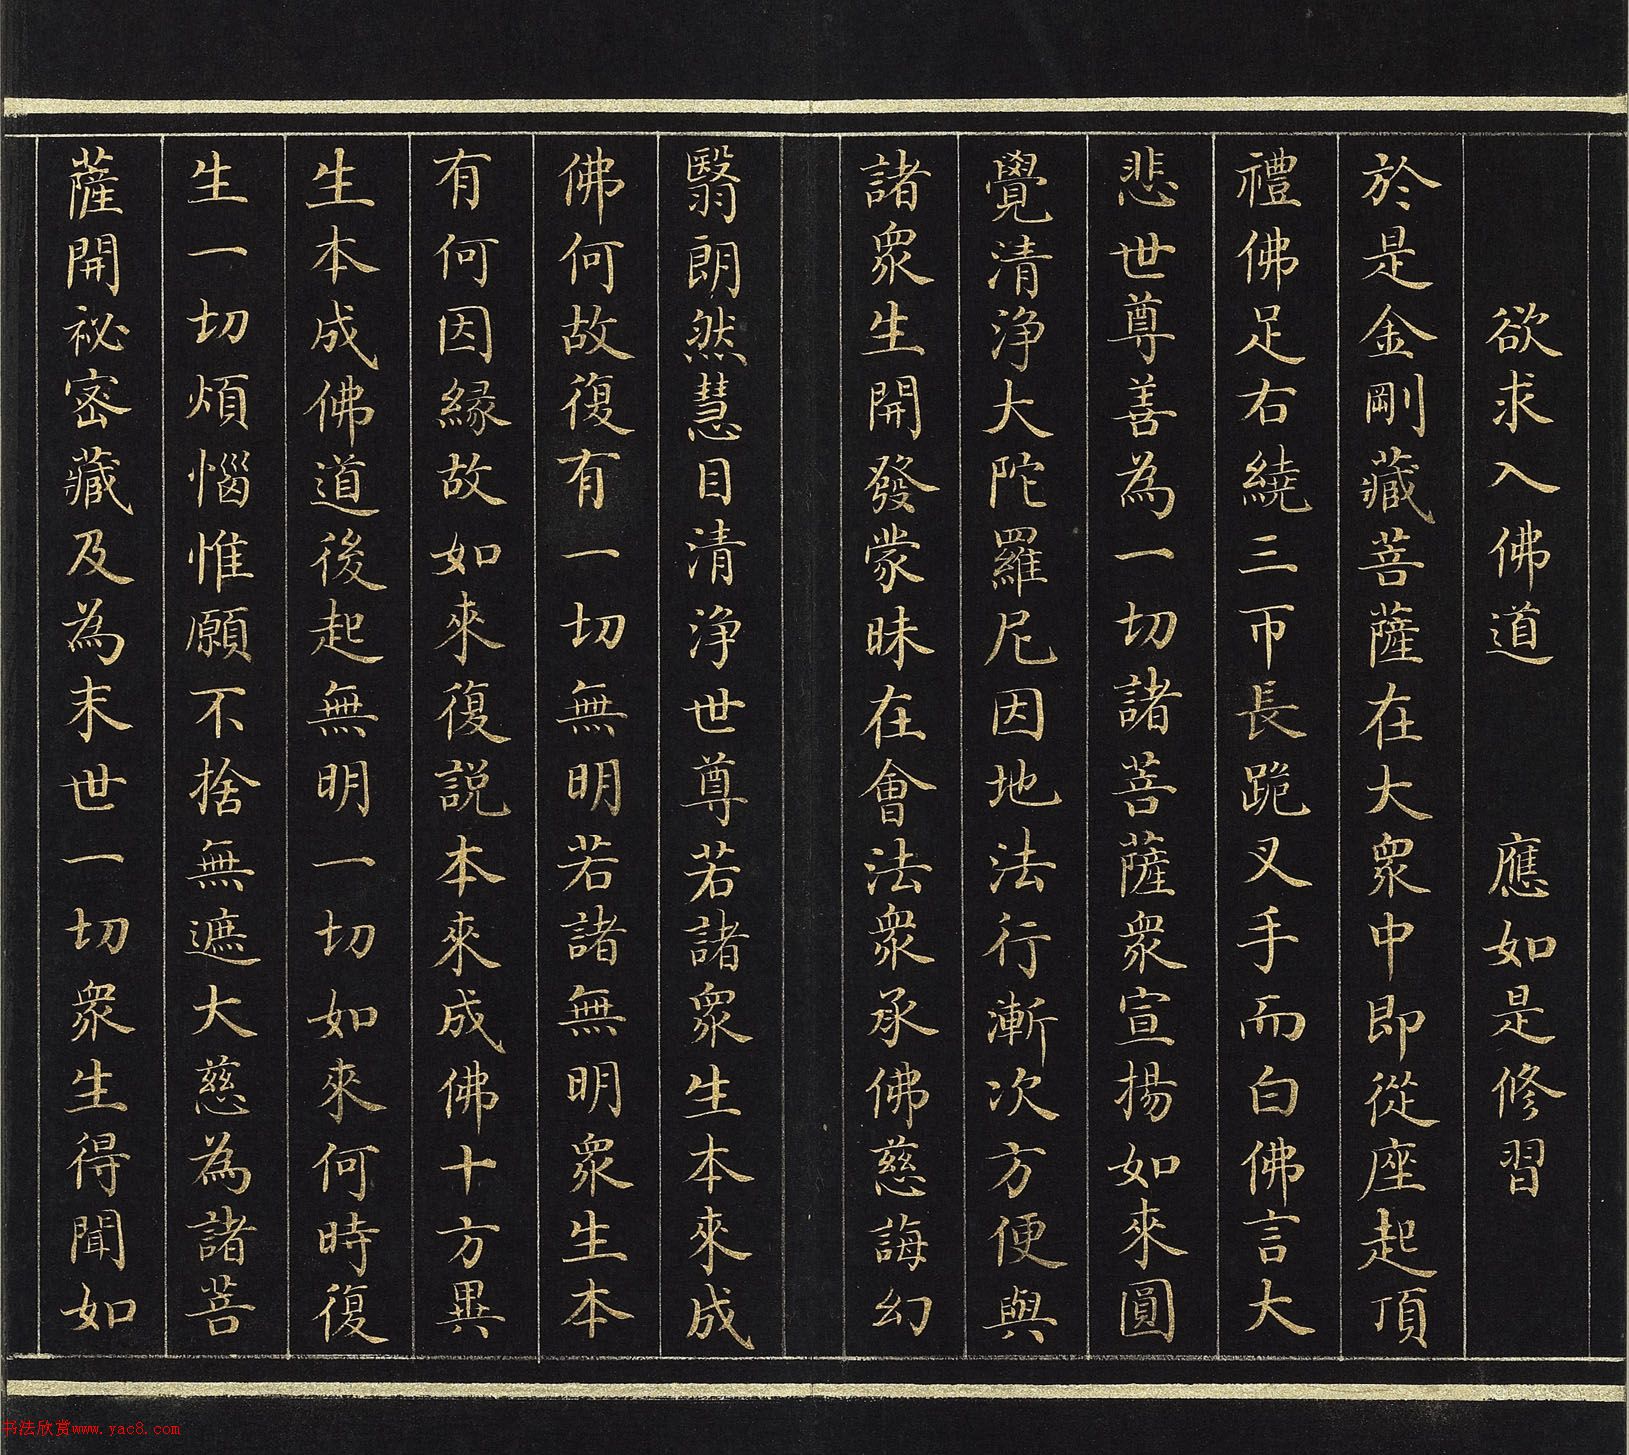 欲求入佛道　應如是修習
於是金剛藏菩薩在大衆中即從座起頂
禮佛足右繞三帀長跪叉手而白佛言大
悲世尊善為一切諸菩薩衆宣揚如來圓
覺清淨大陀羅尼因地法行漸次方便與
諸衆生開發蒙昧在會法衆承佛慈誨幻
翳朗然慧目清淨世尊若諸衆生本來成
佛何故復有一切無明若諸無明衆生本
有何因緣故如來復說本來成佛十方異
生本成佛道後起無明一切如來何時復
生一切煩惱惟願不捨無遮大慈為諸菩
薩開祕密藏及為末世一切衆生得聞如
书法欣赏www.yac8.com